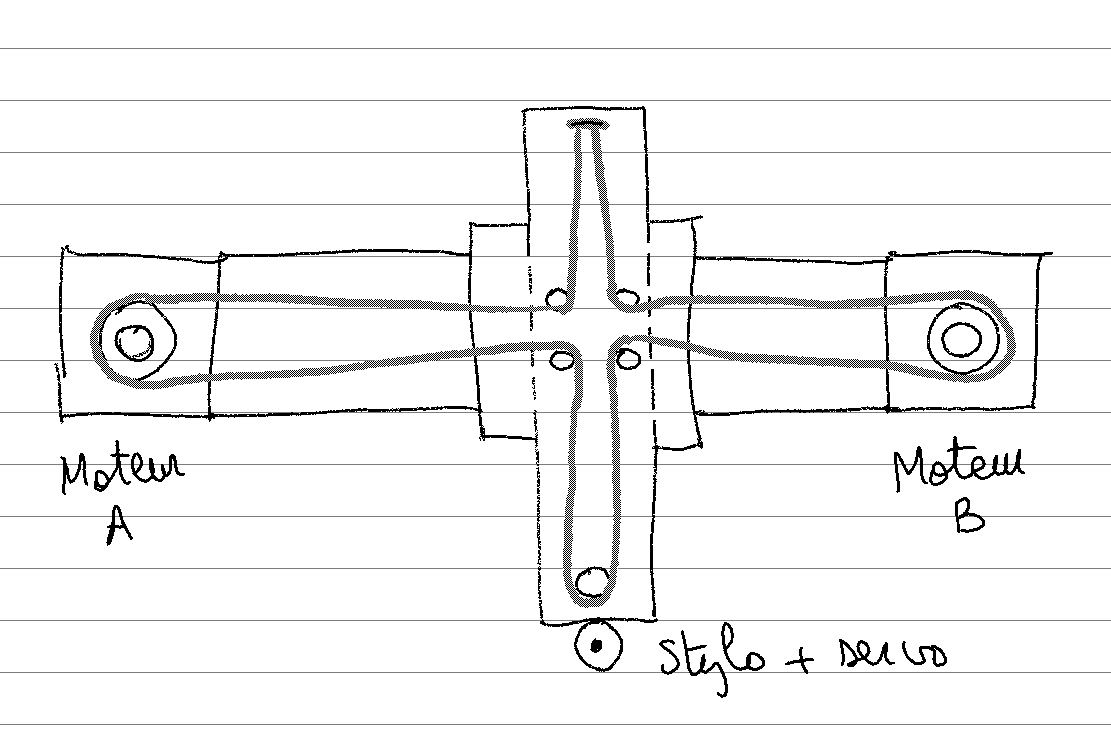 Moteur
A
Moteur
B
Stylo + servo